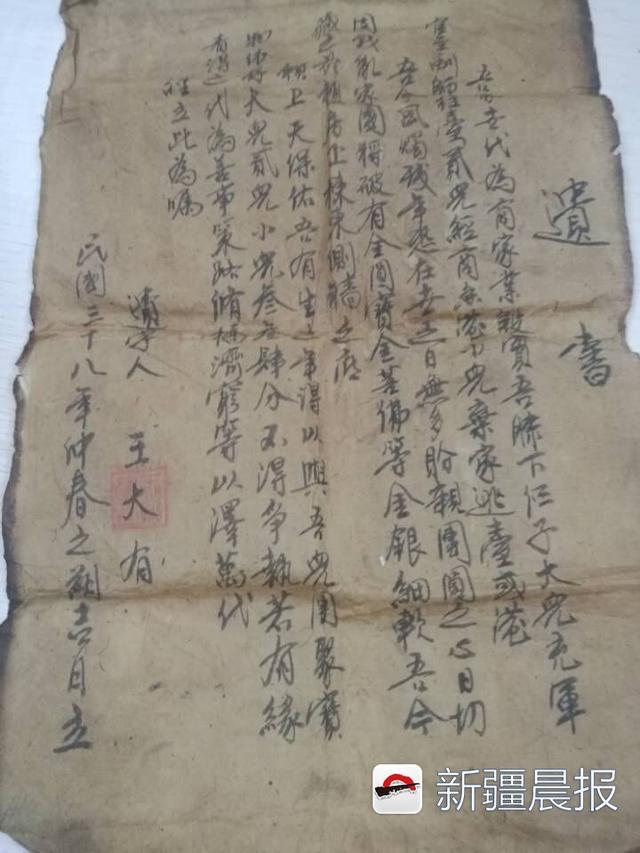 遺書
吾等世代為商家業殷實吾膝下仨子大兒充軍
臺灣 貳兒經商 小兒棄家逃臺或港
吾今風燭殘年想在世之日無多盼親團圓之心日切
因戰亂家園將破有金圓寶金菩佛等金銀細軟吾今
藏之於祖房正棟東側牆之底
祈上天保佑吾有生之年得以與吾兒團聚寶
物均分大兒貳兒小兒叁叁肆分不得争執若有緣
者得之代為善事築路脩橋濟窮等以澤萬代
立此為囑
遺字人 王大有
民國三十八年仲春之朔吉日立
新疆晨报